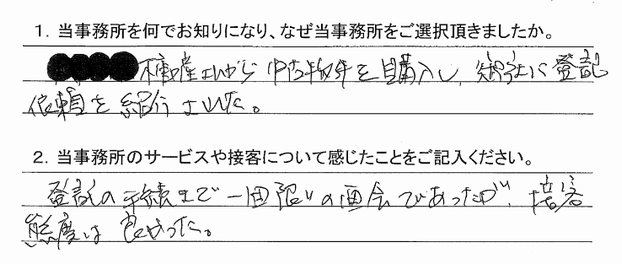 1. 当事務所を何でお知りになり、なぜ当事務所をご選択頂きましたか。
不動産さんから中古物件を購入し、登記
依頼を紹介された。
2. 当事務所のサービスや接客について感じたことをご記入ください。
登記の手続まで一回限りの面会であったが、接客
態度は良かった。